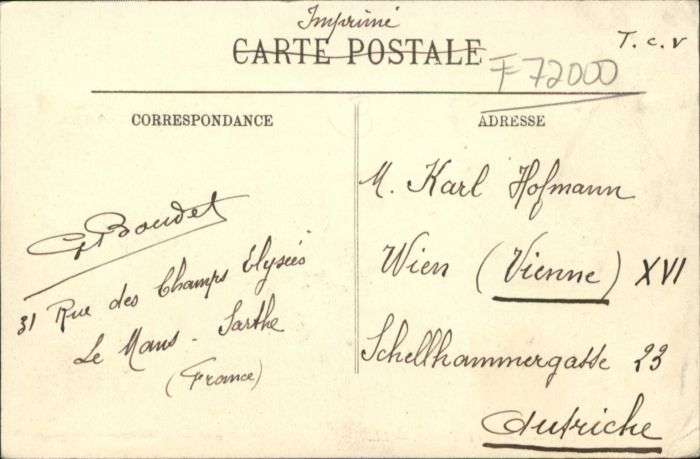 Imprimé
CARTE POSTALE
T. c. v
F 72000
CORRESPONDANCE
G Boudet
31 Rue des Champs Elysées
Le Mans - Sarthe
(France)
ADRESSE
M. Karl Hofmann
Wien (Vienne) XVI
Schellhammergasse 23
Autriche